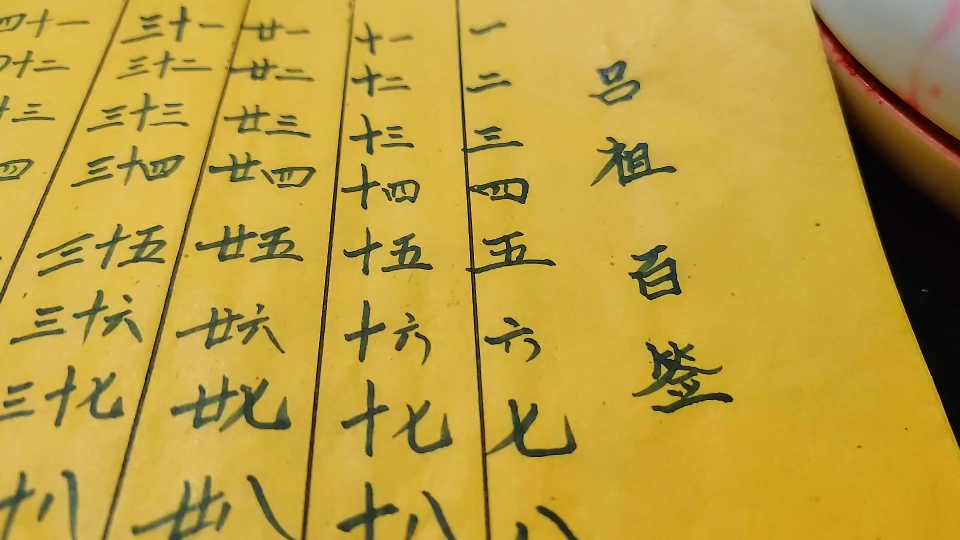 吕祖百签
一 二 三 四 五 六 七 八
十一 十二 十三 十四 十五 十六 十七 十八
廿一 廿二 廿三 廿四 廿五 廿六 廿七 廿八
三十一 三十二 三十三 三十四 三十五 三十六 三十七 十八
四十一 十二 十三 四